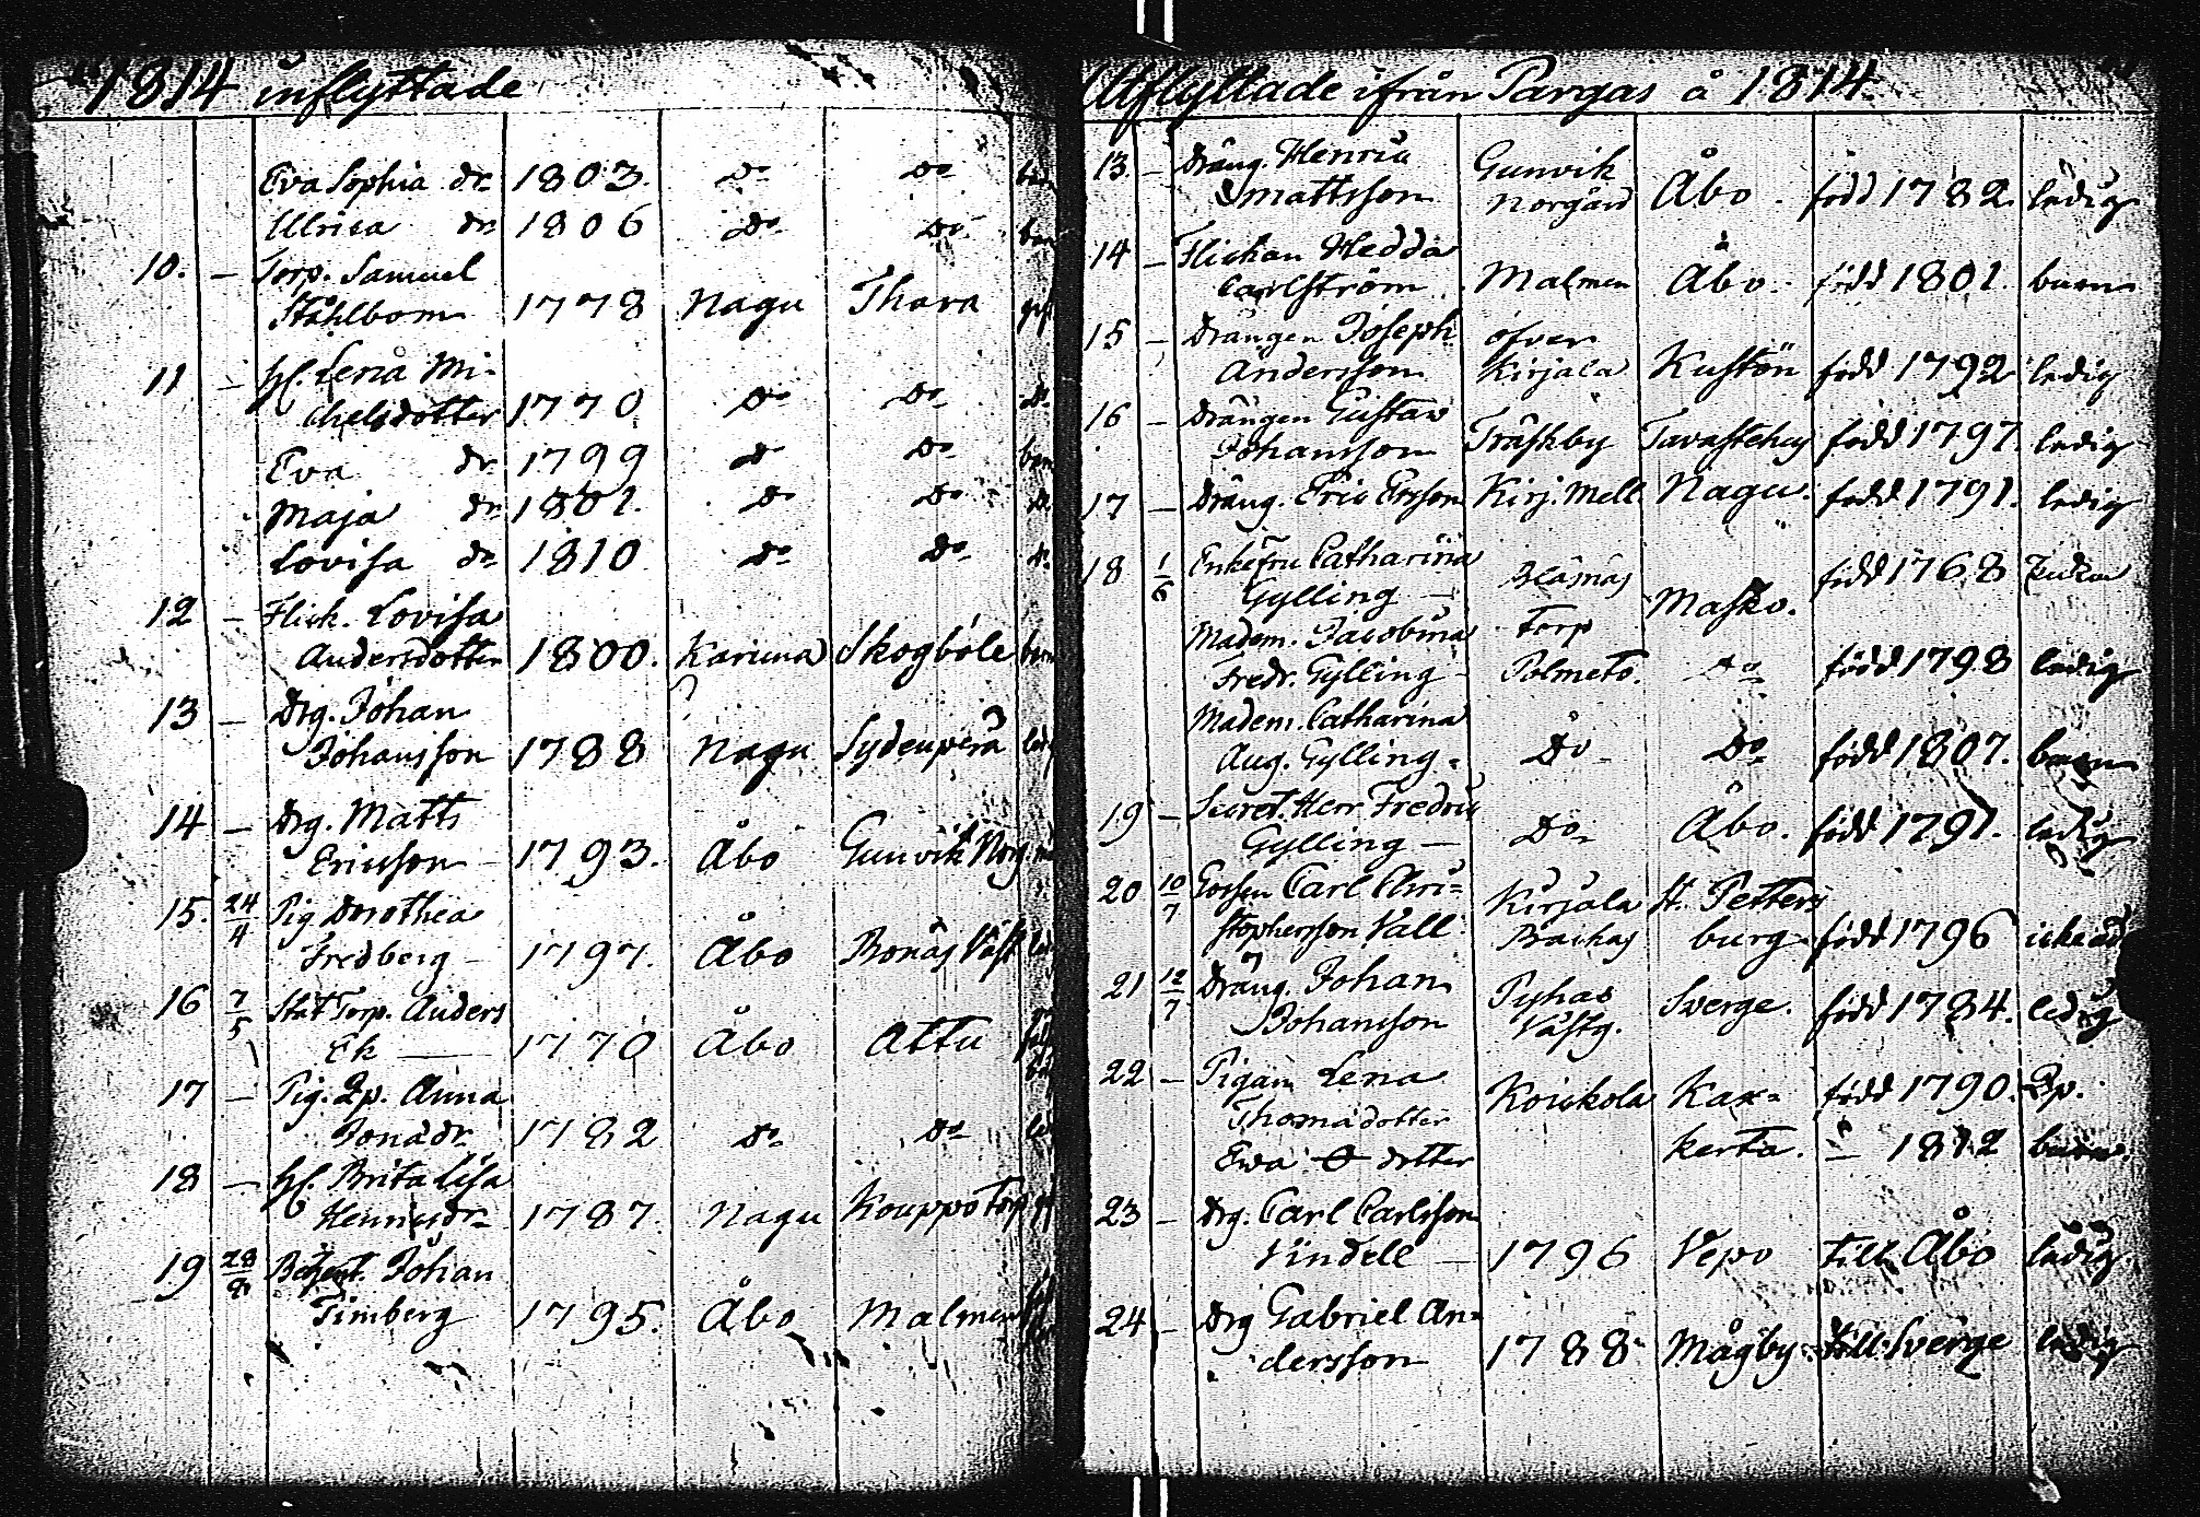 1814 inflyttade
Eva Sophia dr 1803. Do Do barn
Ulrica dr 1806 Do Do barn
10. – Torp. Samuel
Ståhlbom 1778 Nagu Thora
11 – Lena Mi-
chelsdotter 1770 Do Do Do
Eva dr 1799 Do Do barn
Maja dr 1801. Do Do Do
Lovisa dr 1810 Do Do Do
12 – Flick. Lovisa
Andersdotter 1800. Karuna Skogböle barn
13 – Drg. Johan
Johansson 1788 Nagu Sydenperä
14 – Drg. Matts
Ericsson – 1793. Åbo Gunvik Norg
15. 24/4 Pig Dorothea
Fredberg – 1797. Åbo Bonäs Väst
16 7/5 Stat Torp. Anders
Ek — 1770 Åbo Attu
17 – Pig. Qp. Anna
Jonadr. 1782 Do Do
18 – Brita Lisa
Henricsdr 1787. Nagu Kouppo Torp
19 28/8 Johan
Timberg 1795. Åbo Malmen
Utflyttade ifrån Pargas å 1814
13. – Dräng. Henric
Mattsson Gunvik Norgård Åbo. född 1782. ledig
14 – Flickan Hedda
Carlström Malmen Åbo. född 1801. barn
15 – Drängen Joseph öfver
Andersson Kirjala Kustön född 1792 ledig
16 – Drängen Gustav
Johansson Träskby Tavastehus född 1797. ledig
17 – Dräng. Eric Ersson Kirj. Mell Nagu. född 1791. ledig
18 1/6 Enkefru Catharina
Gylling – Bläsnäs Torp Masko. född 1768 Enka
Madem. Jacobina
Fredr. Gylling – Polmeto. Do född 1798 ledig
Madem. Catharina
Aug. Gylling. Do Do född 1807. barn
19 – Secret. Herr Fredric
Gylling — Do Åbo. född 1791. ledig
20 10/7 Gossen Carl Chri=
stophersson Vall. Kirjala St. Petters
burg född 1796
21 12/7 Dräng. Johan Pyhas
Johansson Västg. Sverge. född 1784. ledig
22 – Pigan Lena
Thomadotter Koickola Kar= född 1790. Qp.
Ewa dotter kerta. – 1812 barn
23 – Drg. Carl Carlsson
Vindell – 1796 Vepo till Åbo ledig.
24 – Drg Gabriel An=
dersson 1788 Mågby till Sverge ledig